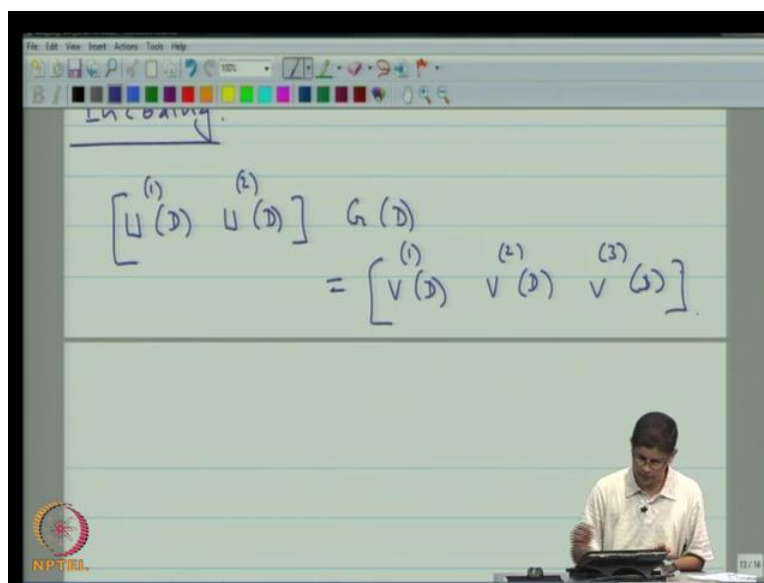 File Edit View Insert Actions Tools Help
100%
Encoding.
[U^(1)(D) U^(2)(D)] G(D)
= [V^(1)(D) V^(2)(D) V^(3)(D)].
NPTEL
13 / 14